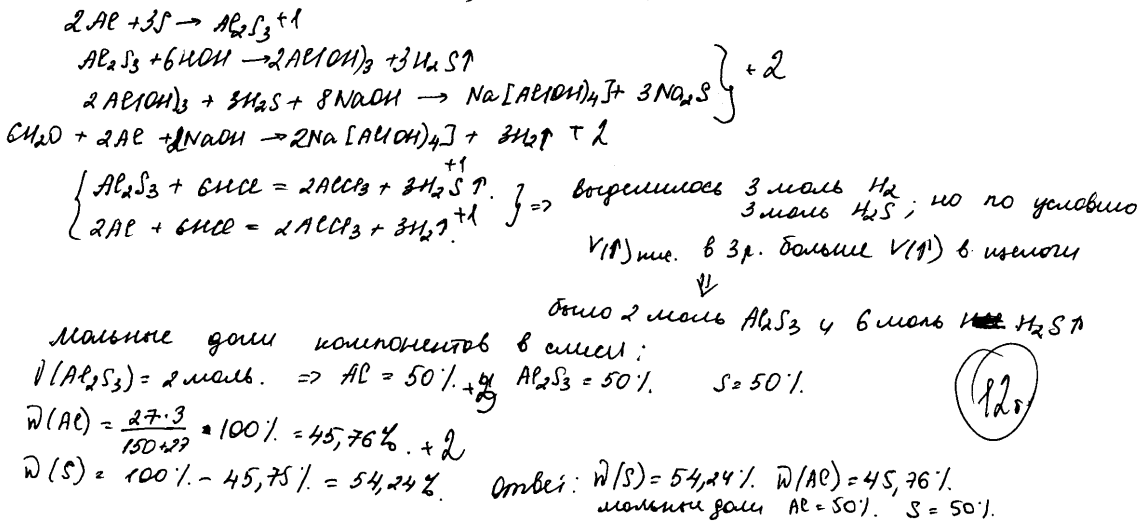 2Al + 3S → Al₂S₃ +1
Al₂S₃ + 6HOH → 2Al(OH)₃ + 3H₂S↑
2Al(OH)₃ + 3H₂S + 8NaOH → Na[Al(OH)₄] + 3Na₂S } + 2
6H₂O + 2Al + 2NaOH → 2Na[Al(OH)₄] + 3H₂↑ + 2
{ Al₂S₃ + 6HCl = 2AlCl₃ + 3H₂S↑. +1
2Al + 6HCl = 2AlCl₃ + 3H₂↑. +1 } => выделилось 3 моль H₂
3 моль H₂S; но по условию
V(↑) кис. в 3 р. больше V(↑) в щелочи
⇓
было 2 моль Al₂S₃ и 6 моль H₂S↑
Мольные доли компонентов в смеси:
ν(Al₂S₃) = 2 моль. => Al = 50%. +2 Al₂S₃ = 50%. S = 50%.
12б.
W(Al) = 27·3 / 150+27 · 100% = 45,76%. + 2
W(S) = 100% - 45,75% = 54,24%.
Ответ: W(S) = 54,24% W(Al) = 45,76%.
мольные доли Al = 50%. S = 50%.